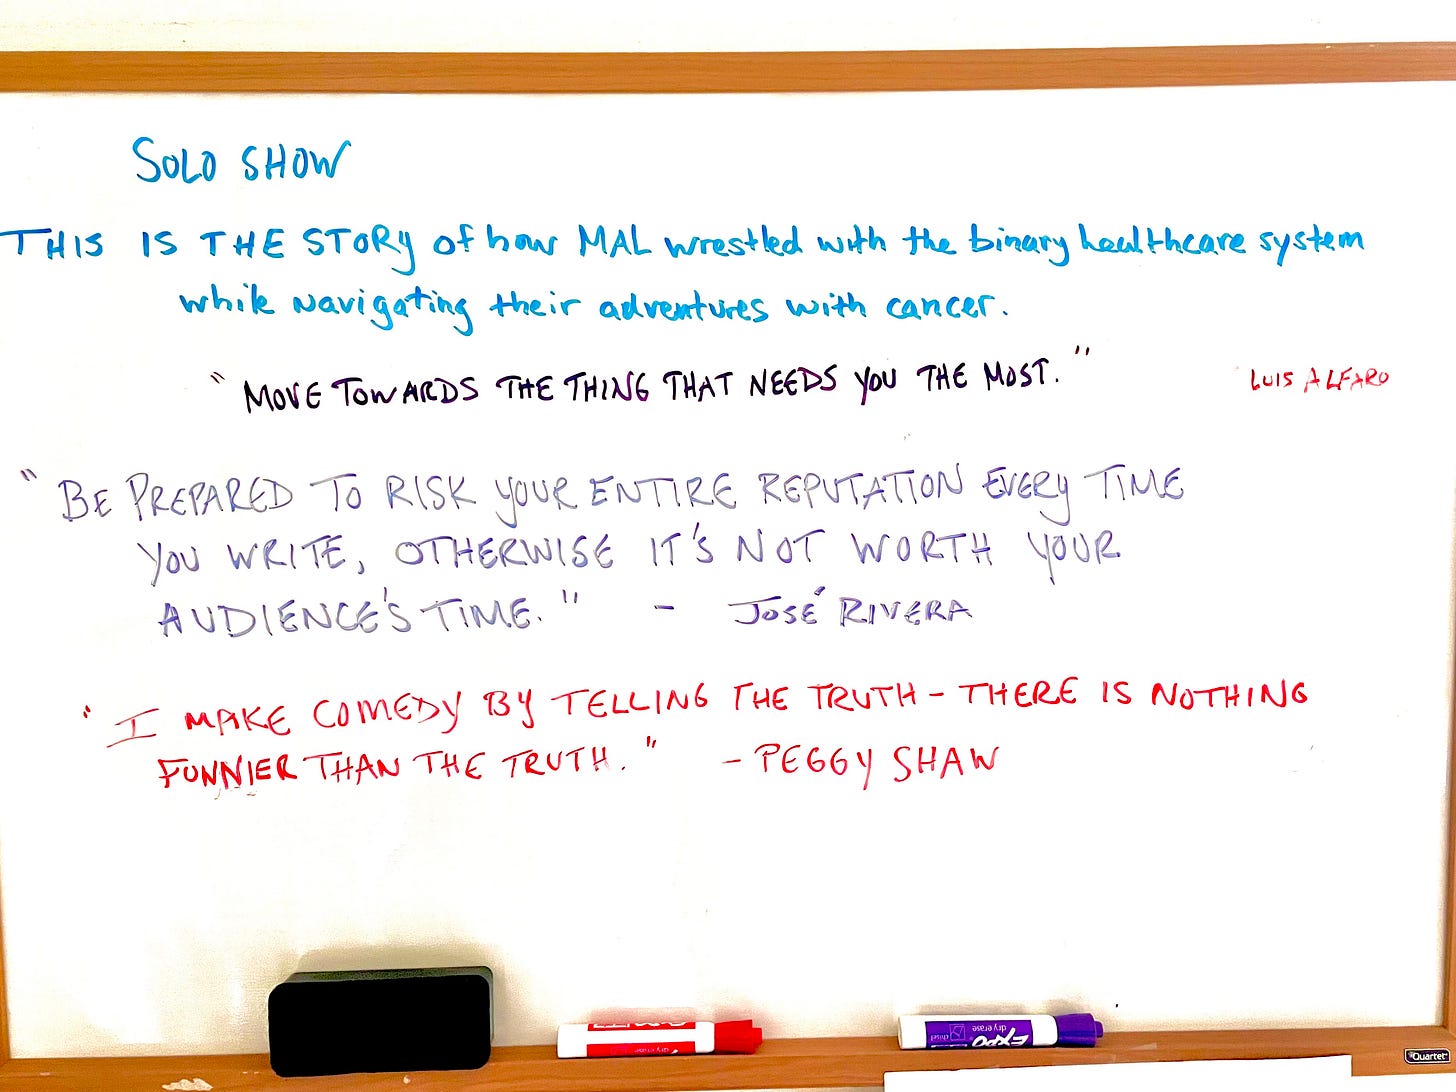 SOLO SHOW
THIS IS THE STORY of how MAL wrestled with the binary healthcare system
while navigating their adventures with cancer.
"MOVE TOWARDS THE THING THAT NEEDS YOU THE MOST." LUIS ALFARO
"BE PREPARED TO RISK YOUR ENTIRE REPUTATION EVERY TIME
YOU WRITE, OTHERWISE IT'S NOT WORTH YOUR
AUDIENCE'S TIME." - JOSÉ RIVERA
"I MAKE COMEDY BY TELLING THE TRUTH - THERE IS NOTHING
FUNNIER THAN THE TRUTH." - PEGGY SHAW
dry erase
EXPO dry erase
chisel
Quartet